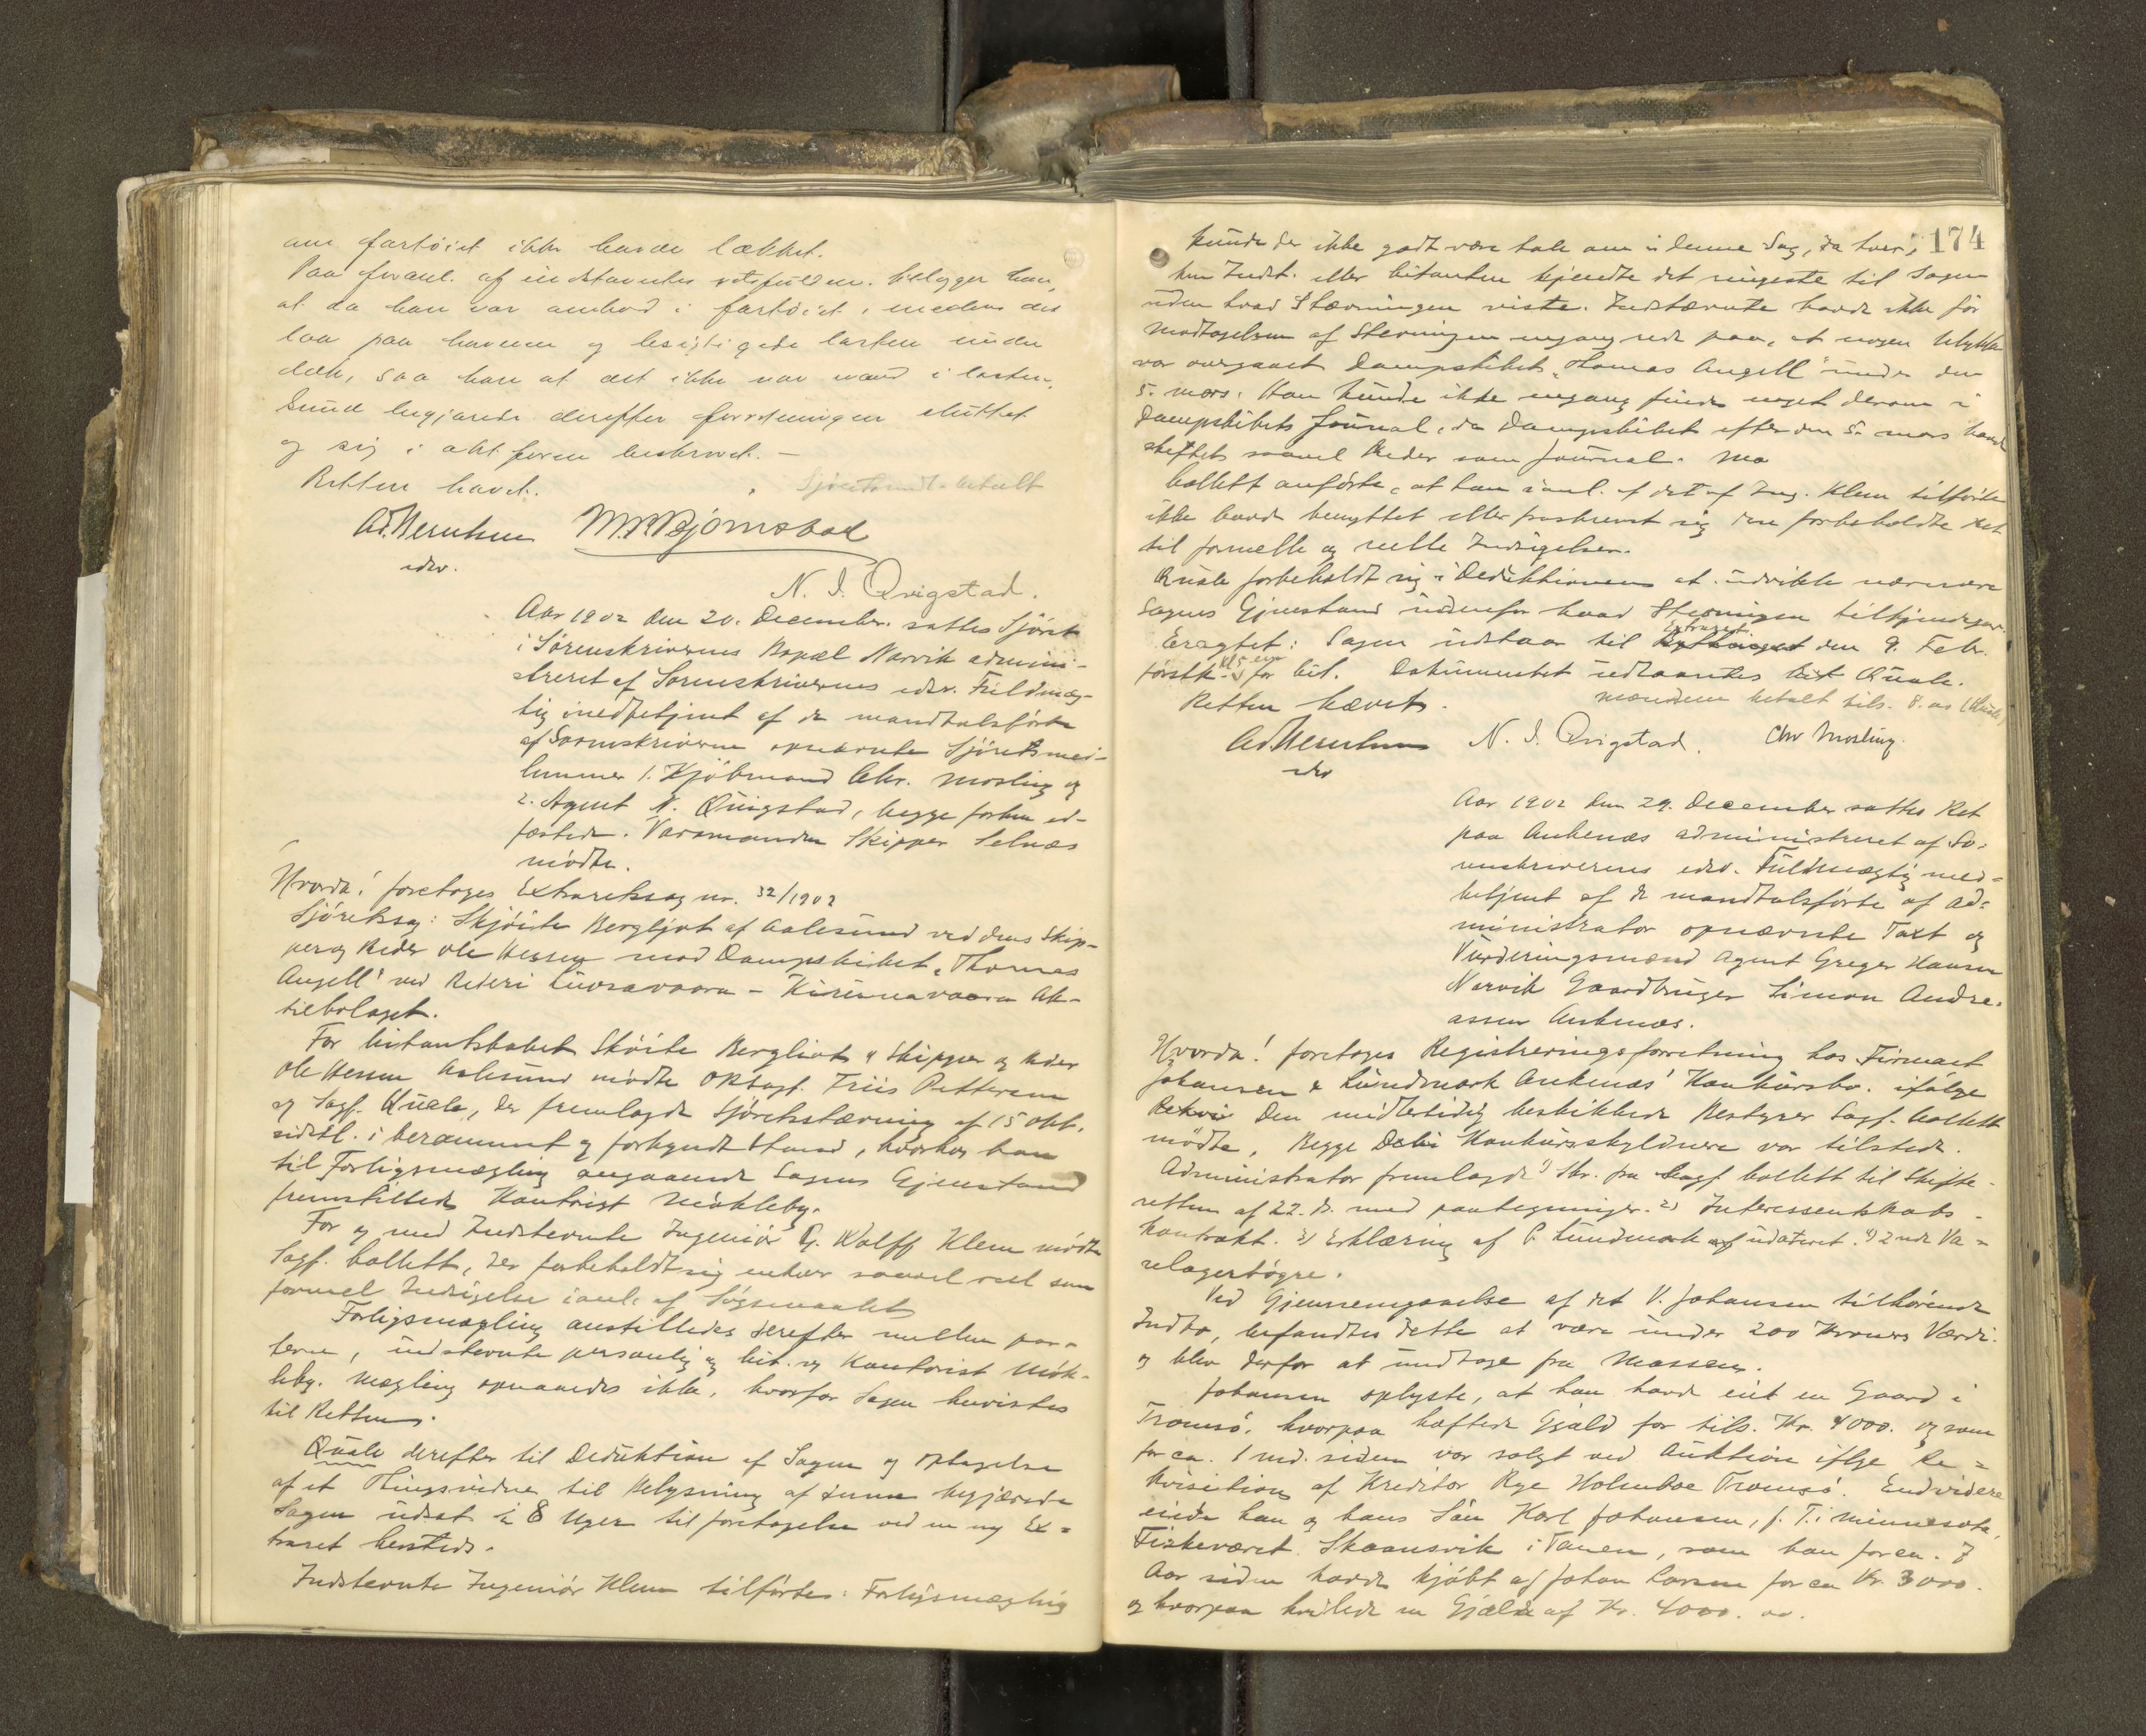 om fartöiet ikke havde lækket.
Paa foranl. af indstævntes retsfuldm. tilføger han,
at da han var ombord i fartöiet, medens det
laa paa havnen og besigtigede lasten under
dæk, saa han at det ikke var vand i lasten.
Sund begjærede derefter forretningen sluttet
og sig i akt form beskrevet. –
Retten hævet. Sjøretsmedl. betalt
Ad. Wernhsen M. R. Bjørnstad
edsv.
N. J. Qvigstad.
Aar 1902 den 20. December sattes Sjöret
i Sörenskriverens Bopæl Narvik admini-
streret af Sorenskriverens edsv. Fuldmæg-
tig medbetjent af de mandtalsförte
af Sorenskriveren opnævnte Sjöretsmed-
lemmer 1. Kjöbmand Chr. Mosling og
2. Agent N. Quigstad, begge forhen ed-
fæstede. Varamanden Skipper Selnæs
mödte.
Hvorda! foretoges Extraretssag nr. 32/1902
Sjöretssag: Skjöite Bergljot af Aalesund ved dens Skip-
per og Reder Ole Hessen mod Dampskibet "Thomas
Angell" ved Rederi Luosavaara – Kiirunavaara Ak-
tiebolaget.
For Citantskabet Sköite Bergliot & Skipper og Reder
Ole Hessen Aalesund mödte ORSagf. Friis Pettersen
og Sagf. Quale, der fremlagde Sjöretsstævning af 15 Okt.
sidstl. i berammet og forkyndt Stand, hvorhos han
til Forligsmægling angaaende Sagens Gjenstand
fremstillede Kontorist Mökleby.
For og med Indstevnte Ingeniör G. Wolff Klem mödte
Sagf. Collett, der forbeholdt sig enhver saavel reel som
formel Indsigelse i anl. af Søgsmaalet
Forligsmægling anstilledes derefter mellem par-
terne, indstevnte personlig og Cit. ved Kontorist Mök-
leby. Mægling opnaaedes ikke, hvorfor Sagen henvistes
til Retten.
Quale derefter til Deduktion af Sagen og Optagelse
af et Thingsvidne til Belysning af denne begjærede
Sagen udsat i 8 Uger til foretagelse ved en ny Ex-
traret hersteds.
Indstevnte Ingeniör Klem tilförtes: Forligsmægling
174
kunde der ikke godt være tale om i denne Sag, da hver-
ken Indst. eller Citanten kjendte det ringeste til Sagen
uden hvad Stævningen viste. Indstævnte havde ikke för
Modtagelsen af Stevningen engang rede paa, at nogen Ulykke
var overgaaet Dampskibet "Thomas Angell" under den
5. mars. Han kunde ikke engang finde noget derom i
Dampskibets Journal, da Dampskibet efter den 5. mars havde
skiftet saavel Reder som Journal.
Collett anförte, at han i anl. af det af Ing. Klem tilförte
ikke havde benyttet eller fraskrevet sig den forbeholdte Ret
til formelle og reelle Indsigelser.
Quale forbeholdt sig i Deduktionen at udvikle nærmere
Sagens Gjenstand udenfor hvad Stevningen tilkjendegav.
Eragtet: Sagen udstaar til Extraret den 9. Febr.
förstk. Kl 5 em for Cit. Dokumentet udlaantes Quale.
Retten hævet. mændene betalt tils. 8.00 (Quale)
Ad. Wernhsen N. J. Qvigstad. Chr Mosling.
edsv
Aar 1902 den 29. December sattes Ret
paa Ankenæs administreret af So-
renskriverens edsv. Fuldmægtig med-
betjent af de mandtalsförte af Ad-
ministrator opnævnte Taxt og
Vurderingsmænd Agent Greger Hansen
Narvik Gaardbruger Simon Andre-
assen Ankenæs.
Hvorda! foretoges Registreringsforretning hos Firmaet
Johansen & Lundmark Ankenæs' Konkursbo. ifölge
Den midlertidig beskikkede Bestyrer Sagf. Collett
mödte, Begge Konkursskyldnere var tilstede.
Administrator fremlagde 1) Skr. fra Sagf Collett til Skifte-
retten af 22. ds. med paategninger. 2) Interessentskabs-
kontrakt. 3) Erklæring af P. Lundmark udateret. 4) 2nde Va-
relagerbögre.
Ved Gjennemgaaelse af det V. Johansen tilhörende
Indbo, befandtes dette at være under 200 Kroners Værdi
og blev derfor at undtage fra Massen.
Johansen oplyste, at han havde eiet en Gaard i
Tromsö, hvorpaa hæftede Gjæld for tils. Kr. 4000. og som
for ca. 1 md. siden var solgt ved Auktion iflge Re-
kvisition af Kreditor Rye Holmboe Tromsö. Endvidere
eiede han og hans Sön Karl Johansen, f. T. i Minnesota,
Fiskeværet Skaansvik i Tanen, som han for ca. 7
Aar siden havde kjöbt af Johan Larsen for ca Kr. 3000.
og hvorpaa hvilede en Gjæld af Kr. 4000. oo.